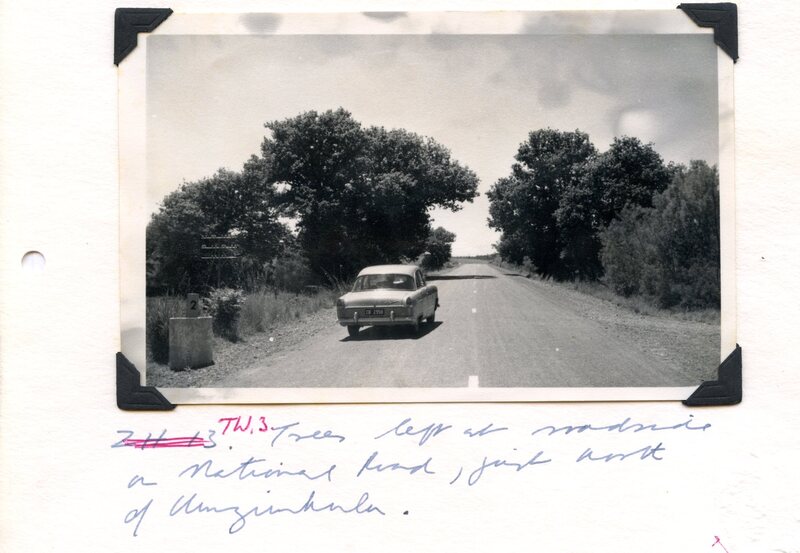 2
TW.3. Trees left at roadside
on National Road, just north
of Umzimkulu.